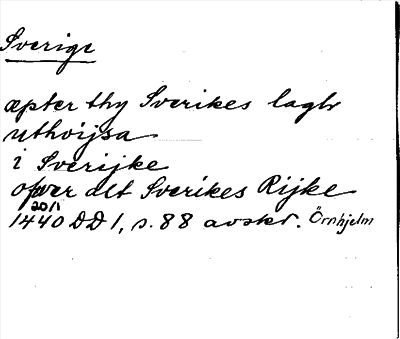 Sverige
æpter thy Sverikes laghr
uthvijsa
i Sverijke
ofwer alt Sverikes Rijke
20/1
1440 DD1, s. 88 avskr. Örnhjelm